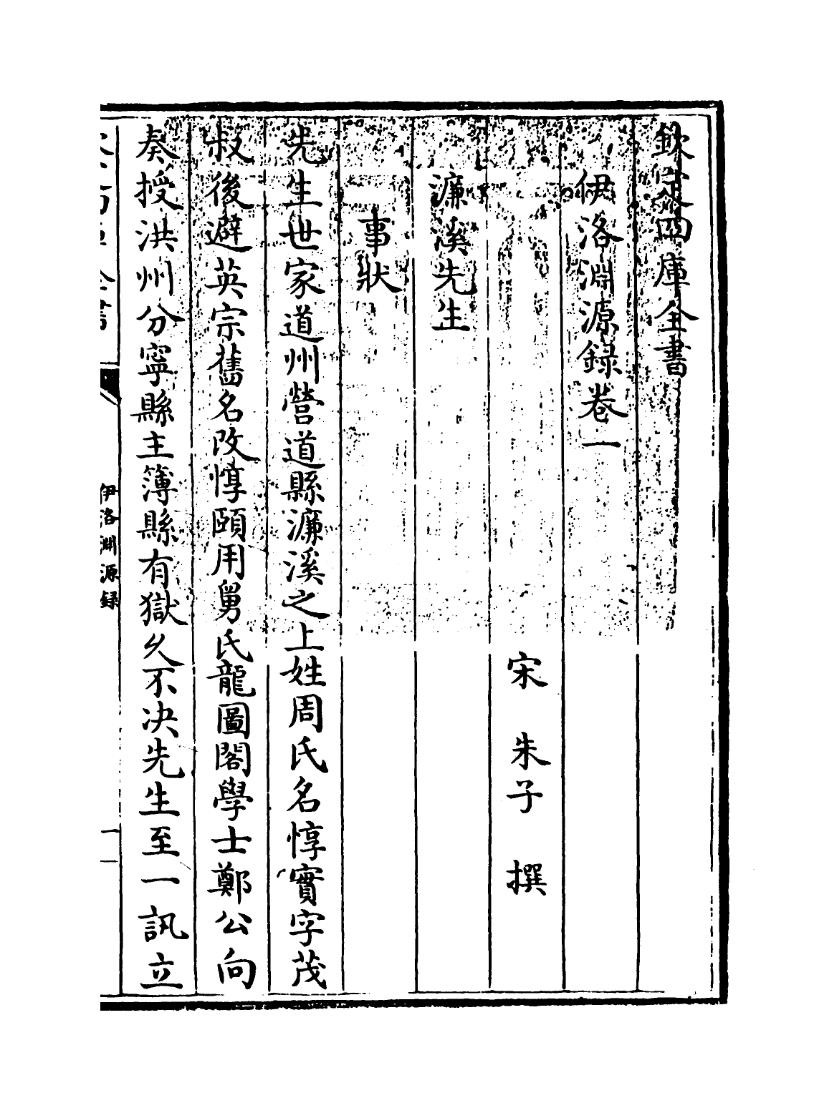 欽定四庫全書
伊洛淵源録卷一
宋 朱子 撰
濂溪先生
事狀
先生世家道州營道縣濂溪之上姓周氏名惇實字茂
叔後避英宗舊名改惇頤用舅氏龍圖閣學士鄭公向
奏授洪州分寧縣主簿縣有獄久不决先生至一訊立
伊洛淵源録
一